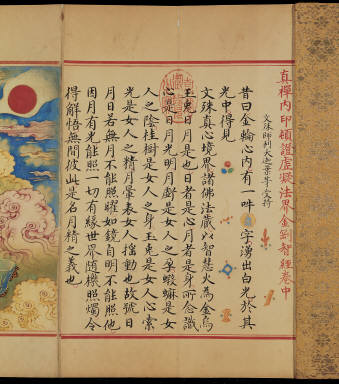 真禪內印頓證虛凝法界金剛智經卷中
文殊師利
昔曰金輪心內有一吽字湧出白光於其
光中得見
文殊真心境界諸佛法藏以智慧火為金烏
玉兔日月是也日者是心月者是身所念識
心是日月光明月
人之陰桂樹是女人之身玉兔是女人心索
光是女人之精月暈表女人搖動也故號日
月日若無月不能照曜如鏡自明不能照他
因月有光能照一切有緣世界隨機照燭令
得解悟無間彼此是名月精之義也